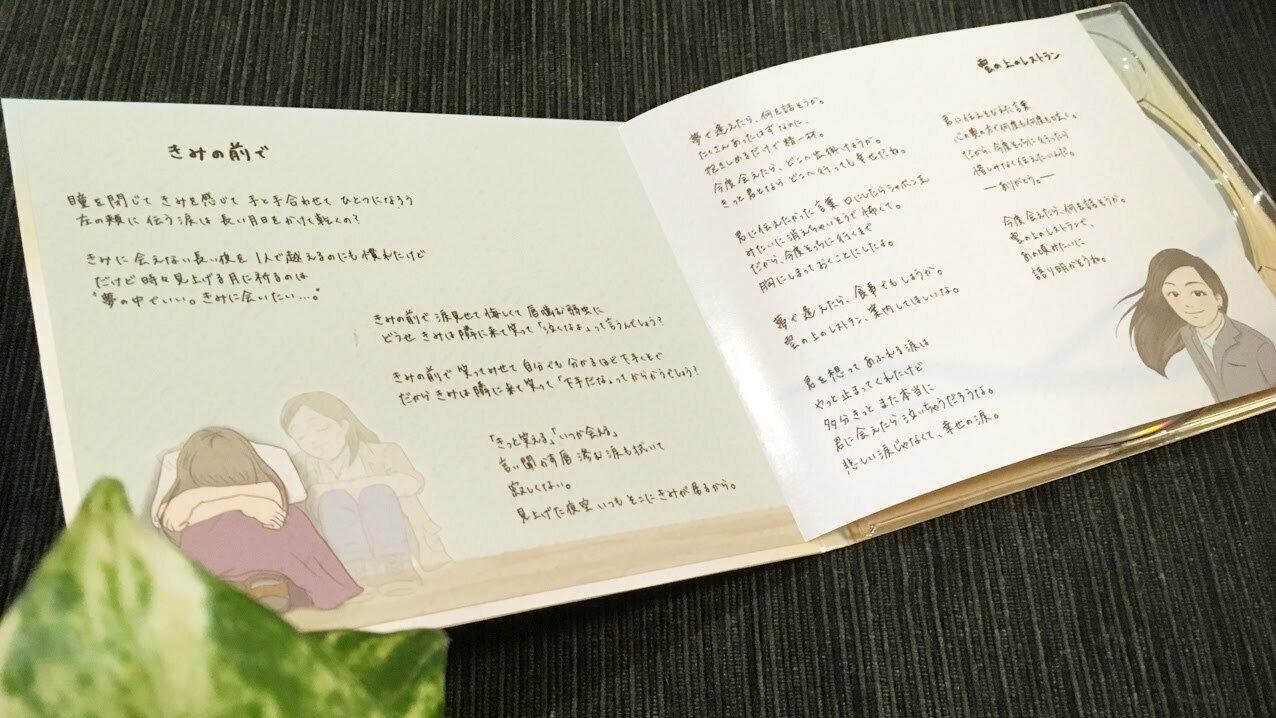 きみの前で
瞳を閉じて きみを感じて 手と手合わせて ひとりになろう
左の頬に 伝う涙は 長い月日をかけて乾くの?
きみに会えない長い夜を 1人で越えるのにも 慣れたけど
だけど時々見上げる月に祈るのは
"夢の中でいい。きみに会いたい…。"
きみの前で 涙見せて 悔しくて 唇噛む弱虫に
どうせ きみは隣に来て笑って「泣くなよ」って言うんでしょう?
きみの前で 笑ってみせて 自分でも 分かるほど下手くそで
だから きみは隣に来て 笑って「下手だな」ってからかうでしょう?
「きっと笑える」「いつか会える」
言い聞かす唇 濡む涙も拭いて
寂しくない。
見上げた夜空 いつも そこにきみが居るから。
雲の上のレストラン
夢で逢えたら、何を話そうか。
たくさんあったはずなのに、
抱きしめるだけで精一杯。
今度会えたら、どこへ出掛けようか。
きっと君となら どこへ行っても 幸せだね。
君に伝えたかった言葉 口にしたらシャボン玉
みたいに消えちゃいそうで 怖くて。
だから、今度そっちに行くまで
胸にしまっておくことにしたよ。
夢で逢えたら、食事でもしようか。
雲の上のレストラン、案内してほしいな。
君を想って あふれる涙は
やっと止まってくれたけど
多分きっと また本当に
君に会えたら泣いちゃうだろうな。
悲しい涙じゃなくて、幸せの涙。
君に伝えそびれた言葉
心の奥の方で何度も何度も呟く。
だから、今度そっちに行ったら
惜しみなく伝えたいんだ。
―ありがとう。―
今度会えたら、何を話そうか。
雲の上のレストランで、
あの頃みたいに
語り明かそうね。